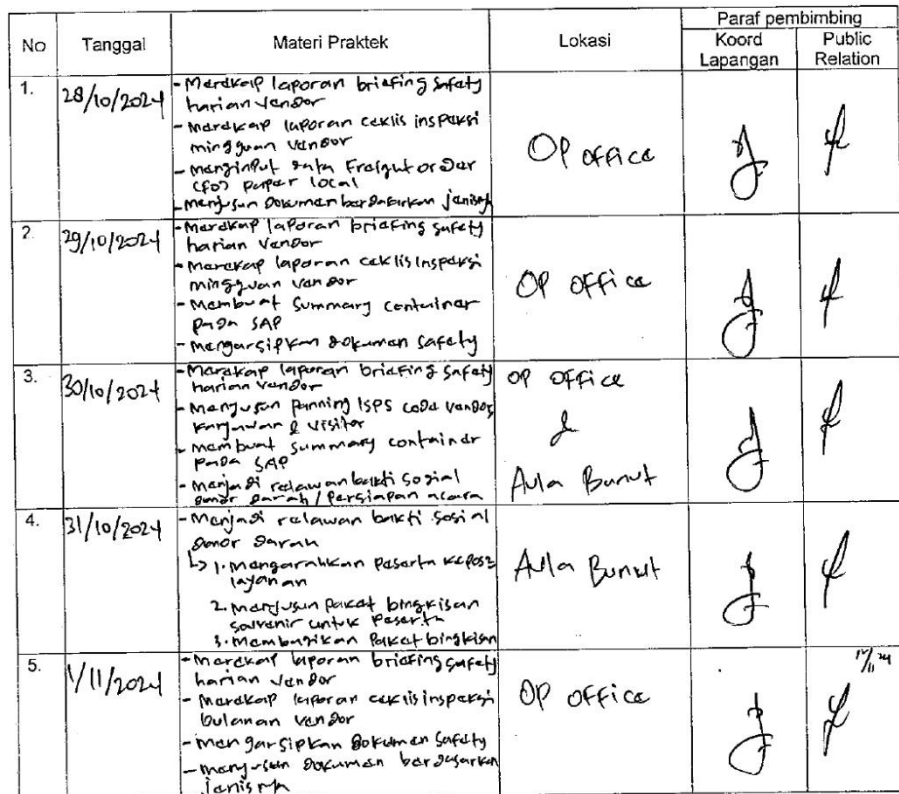 No Tanggal Materi Praktek Lokasi Paraf pembimbing
Koord Lapangan Public Relation
1. 28/10/2024
- Merekap laporan briefing safety
harian vendor
- Merekap laporan ceklis inspeksi
mingguan vendor
- Menginput data Freight order
(FO) paper local
- Menyusun dokumen berdasarkan jenisnya
OP office
2. 29/10/2024
- Merekap laporan briefing safety
harian vendor
- Merekap laporan ceklis inspeksi
mingguan vendor
- Membuat summary container
pada SAP
- Mengarsipkan dokumen safety
OP office
3. 30/10/2024
- Merekap laporan briefing safety
harian vendor
- Menyusun ISPS code vendor,
karyawan & visitor
- membuat summary container
pada SAP
- Menjadi relawan bakti sosial
donor darah / persiapan acara
OP office
&
Aula Bunut
4. 31/10/2024
- Menjadi relawan bakti sosial
donor darah
↳ 1. Mengarahkan peserta ke pos2
layanan
2. Menyusun paket bingkisan
souvenir untuk peserta
3. Membagikan paket bingkisan
Aula Bunut
5. 1/11/2024
- Merekap laporan briefing safety
harian vendor
- Merekap laporan ceklis inspeksi
bulanan vendor
- Mengarsipkan dokumen safety
- menyusun dokumen berdasarkan
jenisnya
OP office